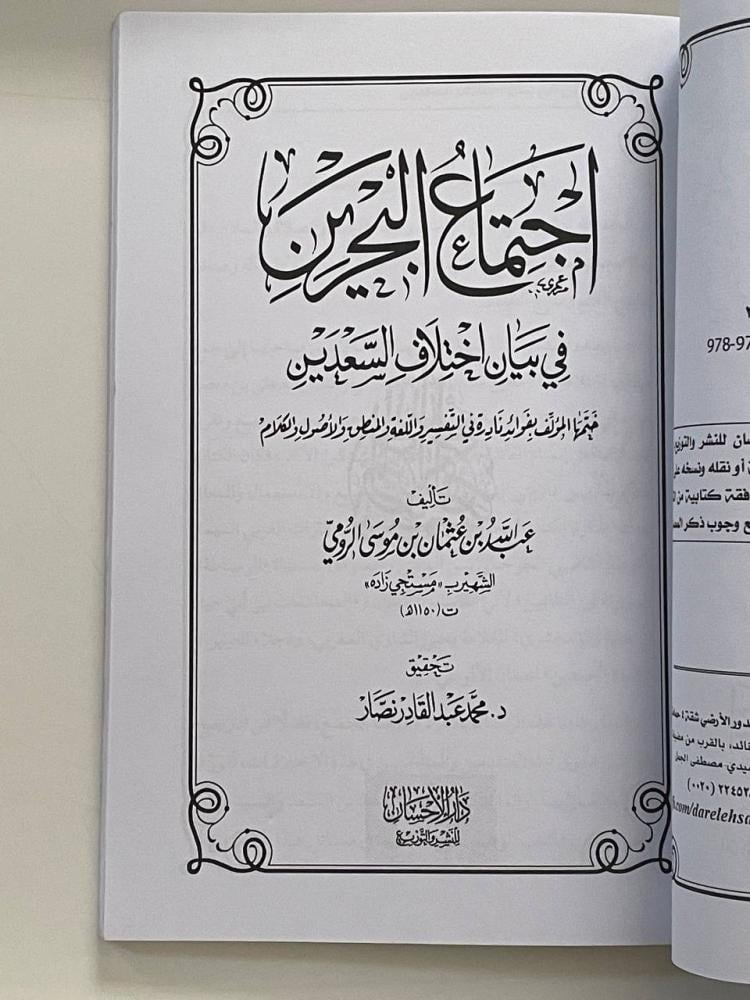 اجْتِمَاعُ الْبَحْرَيْنِ
فِي بَيَانِ اخْتِلَافِ السَّعْدَيْنِ
خَتَمَهَا المُؤَلِّف بِفَوَائِد نَادِرَة فِي التَّفْسِير وَاللُّغَة وَالمَنطِق وَالأُصُول وَالكَلَام
تَأْلِيف
عَبْد اللهِ بْن عُثْمَان بْن مُوسَى الرُّومِيّ
الشهير بـ «مَسْتَجِي زَادَه»
ت (١١٥٠هـ)
تَحْقِيق
د. مُحَمَّد عَبْد القَادِر نَصَّار
دَارُ الإِحْسَان
لِلنَّشْرِ وَالتَّوْزِيع
978-97
للنشر والتوزيع
أو نقله ونسخه
كتابية من
وجوب ذكر
الأرضي شقة ٤
بالقرب من
مصطفى
(٠٠٢٠)
.com/darelehsa